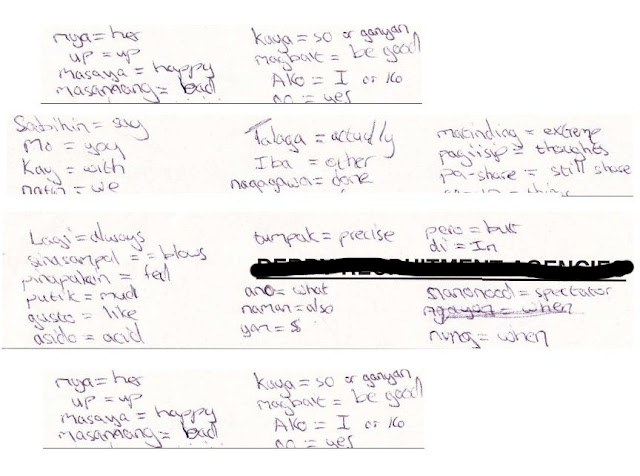 nya = her
up = up
masaya = happy
masamang = bad
Kaya = so or ganyan
magbait = be good
Ako = I or Ko
oo = yes
Sabihin = say
Mo = you
Kay = with
natin = we
Talaga = actually
Iba = other
nagagawa = done
matinding = extreme
pagiisip = thoughts
pa-share = still share
Lagi = always
sinasampal = = blows
pinapakain = feel
putik = mud
gusto = like
asido = acid
tumpak = precise
ano = what
naman = also
yan =
pero = but
di = In
nanonood = spectator
ngayog = when
nung = when
nya = her
up = up
masaya = happy
masamang = bad
Kaya = so or ganyan
magbait = be good
Ako = I or Ko
oo = yes